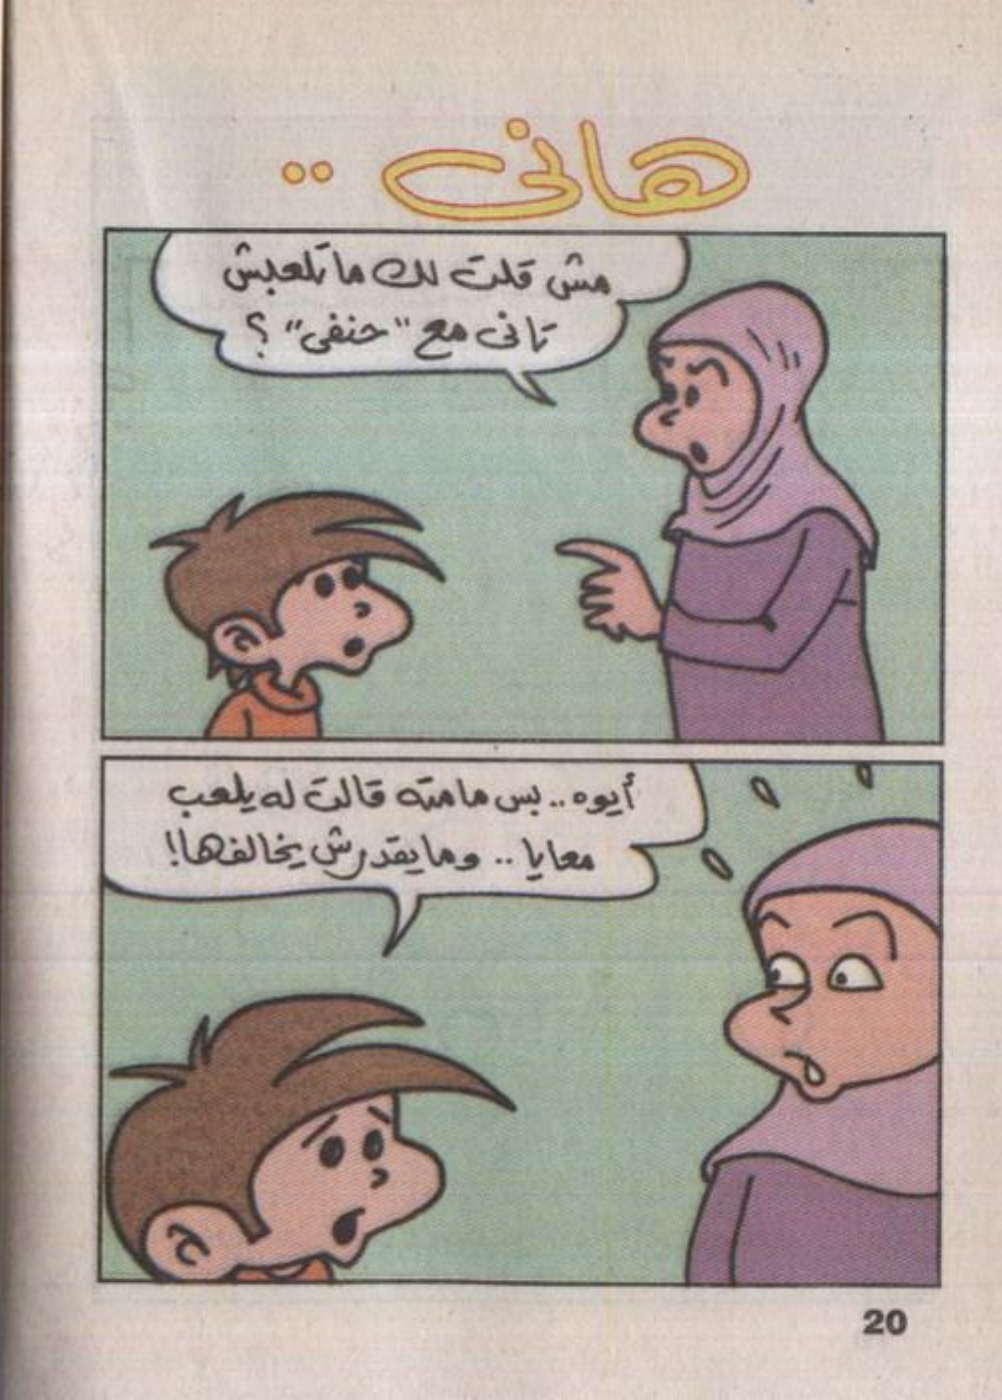 هانى ..
مش قلت لك ما تلعبش
تانى مع "حنفى" ؟
أيوه .. بس مامته قالت له يلعب
معايا .. وما يقدرش يخالفها!
20